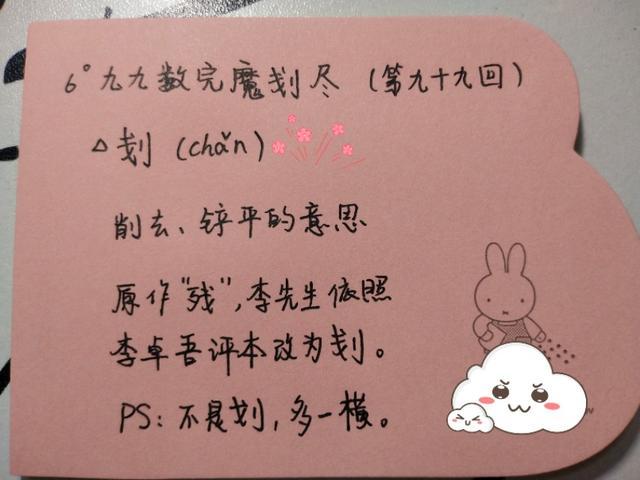 6° 九九数完魔刬尽（第九十九回）
△ 刬（chǎn）
削去、铲平的意思
原作“残”，李先生依照
李卓吾评本改为刬。
PS：不是划，多一横。